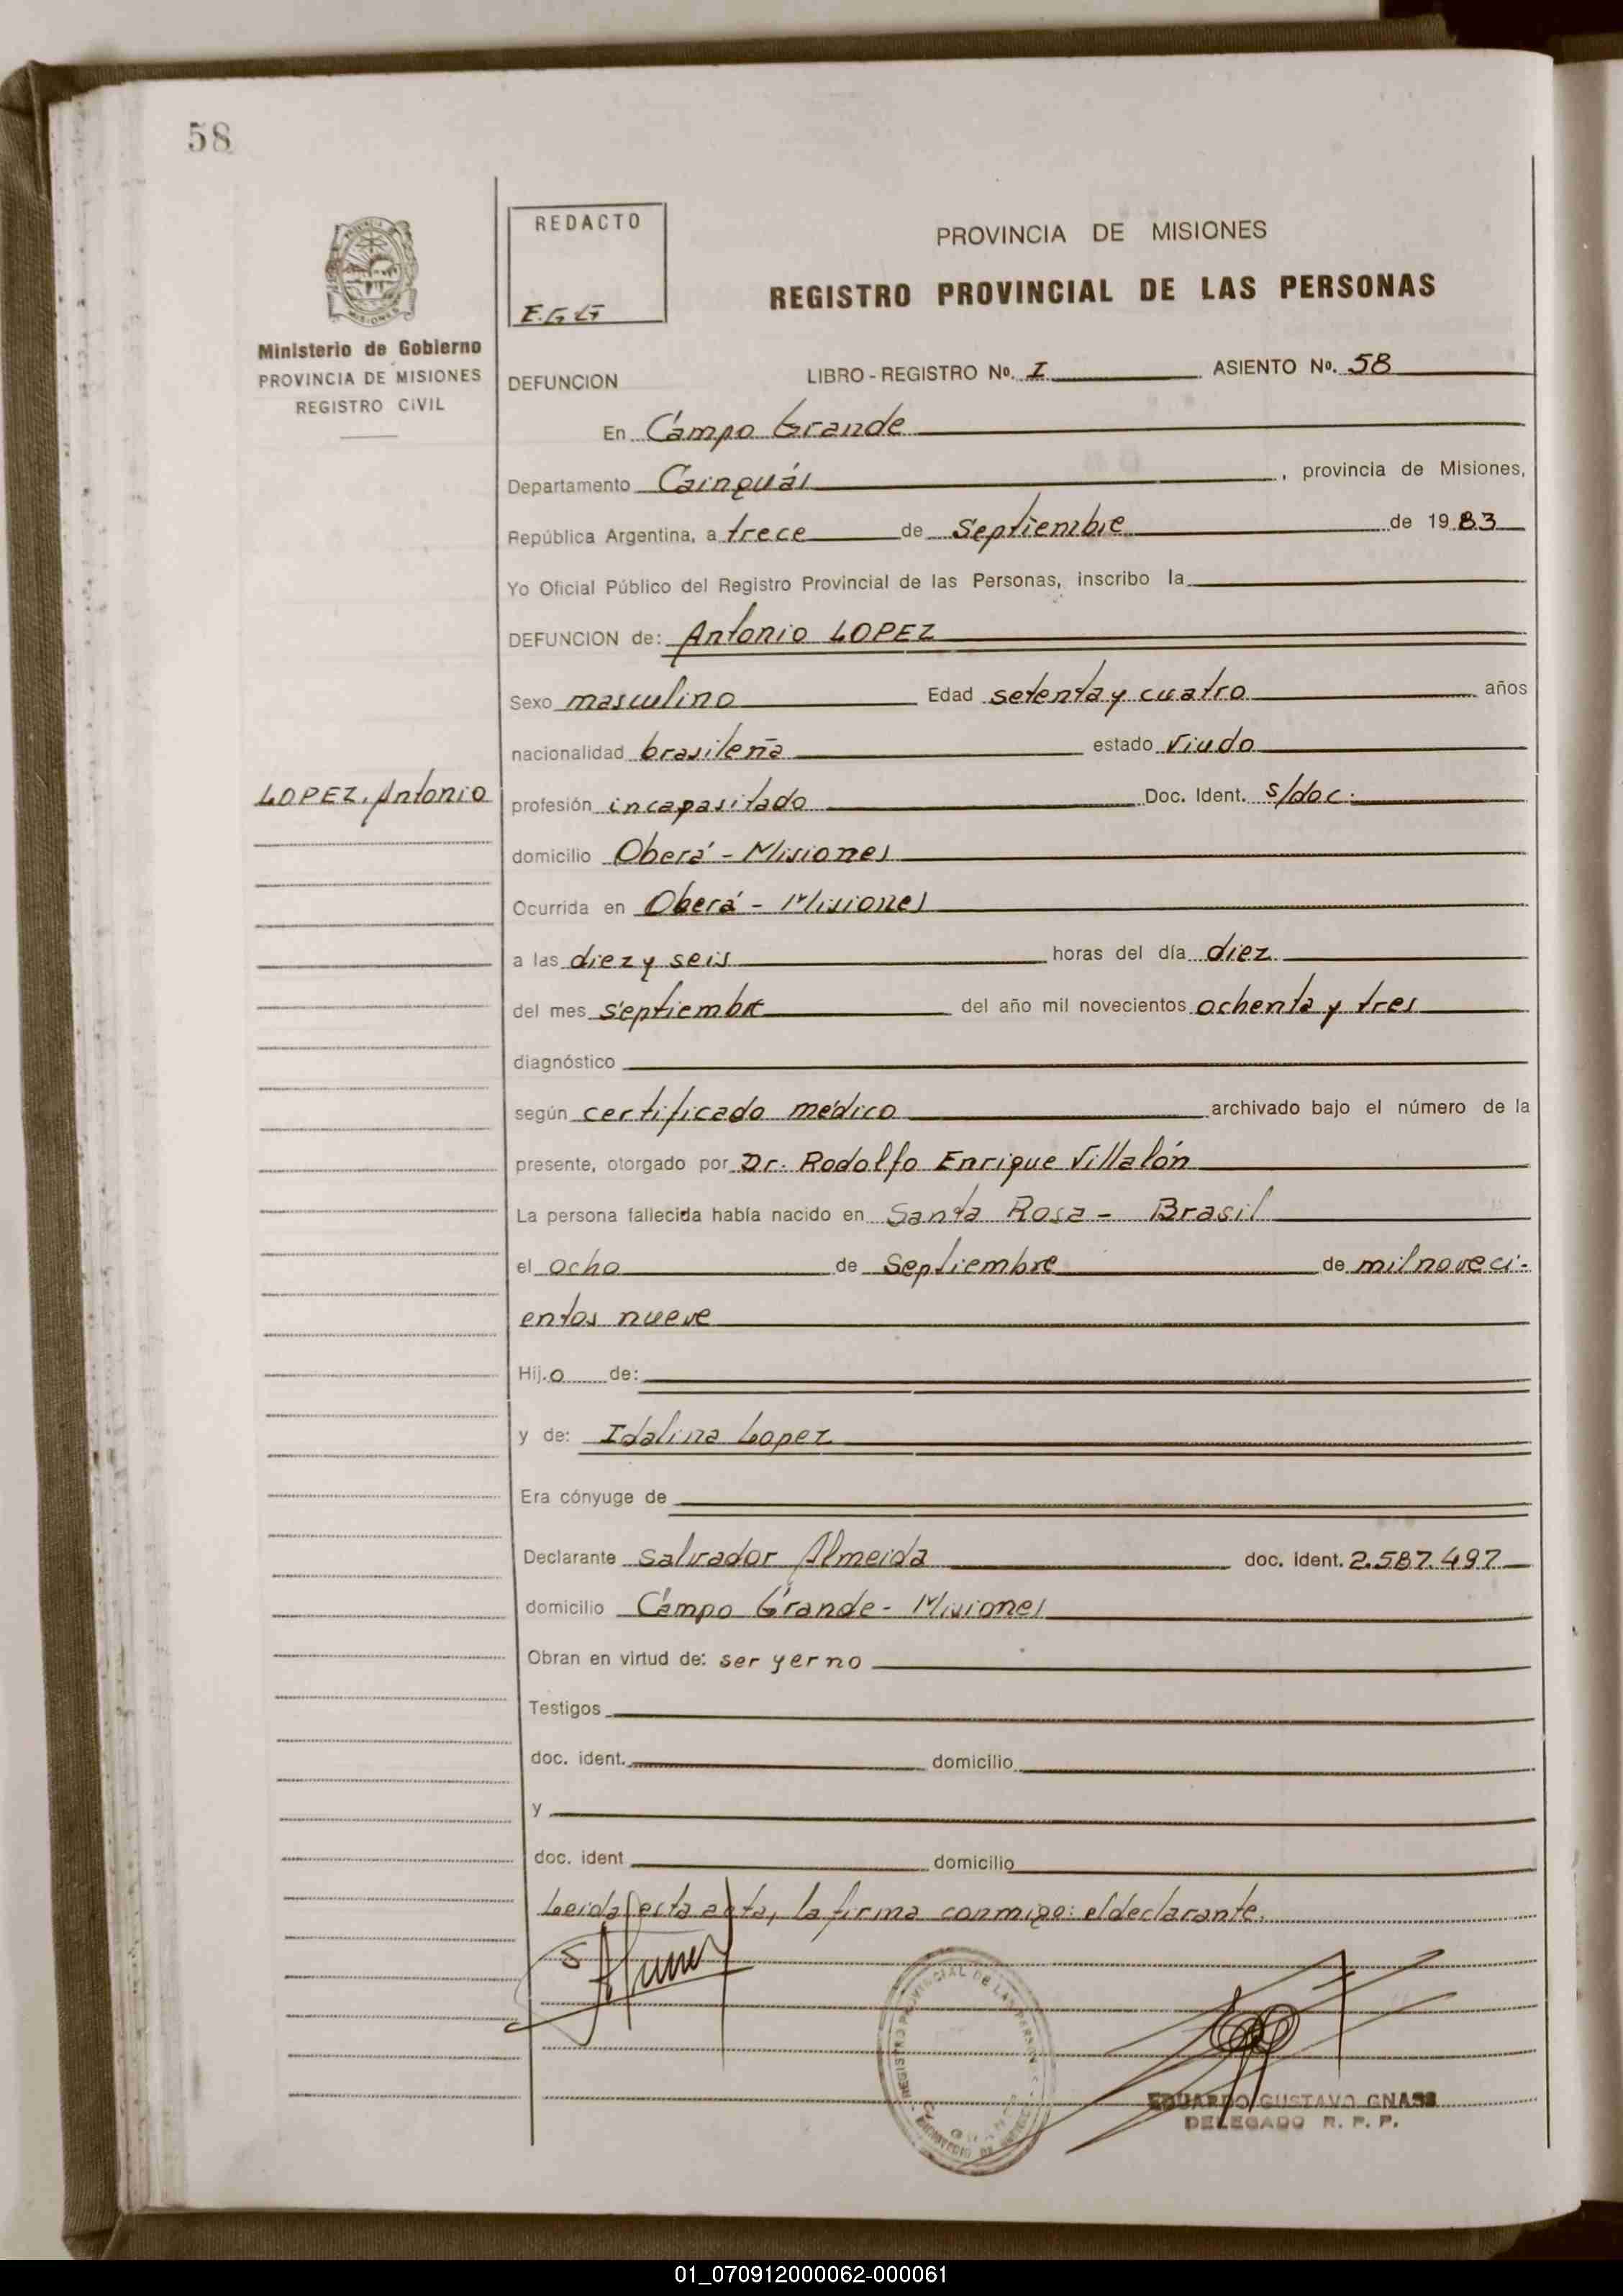 58
REDACTO
E.G.G
PROVINCIA DE MISIONES
REGISTRO PROVINCIAL DE LAS PERSONAS
MISIONES
Ministerio de Gobierno
PROVINCIA DE MISIONES
REGISTRO CIVIL
DEFUNCION LIBRO - REGISTRO No. I ASIENTO No. 58
En Campo Grande
Departamento Cainguás, provincia de Misiones,
República Argentina, a trece de Septiembre de 1983
Yo Oficial Público del Registro Provincial de las Personas, inscribo la
DEFUNCION de: Antonio LOPEZ
Sexo masculino Edad setenta y cuatro años
nacionalidad brasileña estado viudo
LOPEZ, Antonio
profesión incapasitado Doc. Ident. s/doc.
domicilio Oberá - Misiones
Ocurrida en Oberá - Misiones
a las diez y seis horas del día diez
del mes septiembre del año mil novecientos ochenta y tres
diagnóstico
según certificado médico archivado bajo el número de la
presente, otorgado por Dr. Rodolfo Enrique Villalón
La persona fallecida había nacido en Santa Rosa - Brasil
el ocho de Septiembre de mil noveci-
entos nueve
Hij.o de:
y de: Idalina Lopez
Era cónyuge de
Declarante Salvador Almeida doc. ident. 2.587.497
domicilio Campo Grande - Misiones
Obran en virtud de: ser yerno
Testigos
doc. ident. domicilio
y
doc. ident domicilio
Leida esta acta, la firma conmigo: el declarante.
REGISTRO PROVINCIAL DE LAS PERSONAS
EDUARDO GUSTAVO GNASS
DELEGADO R. P. P.
01_070912000062-000061